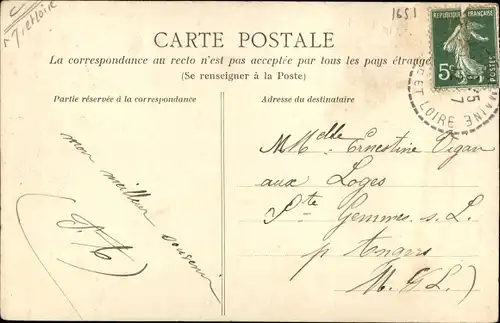 1651
CARTE POSTALE
La correspondance au recto n'est pas acceptée par tous les pays étrange
(Se renseigner à la Poste)
Partie réservée à la correspondance
Adresse du destinataire
REPUBLIQUE FRANÇAISE
5c
POSTES
ET LOIRE
Mon meilleur souvenir
Melle Ernestine Vigan
aux Loges
Ste Gemmes s. L.
p Angers
M. & L)